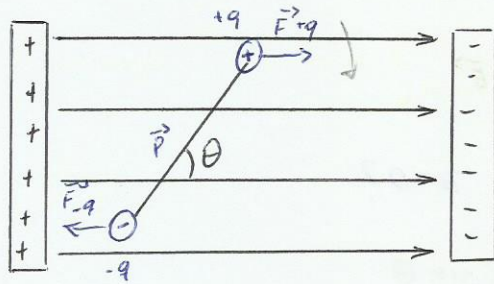 +q
F⃗+q
+
-
+
+
-
+
-
+
-
P⃗
θ
+
-
+
-
F⃗-q
+
-
-
+
-q